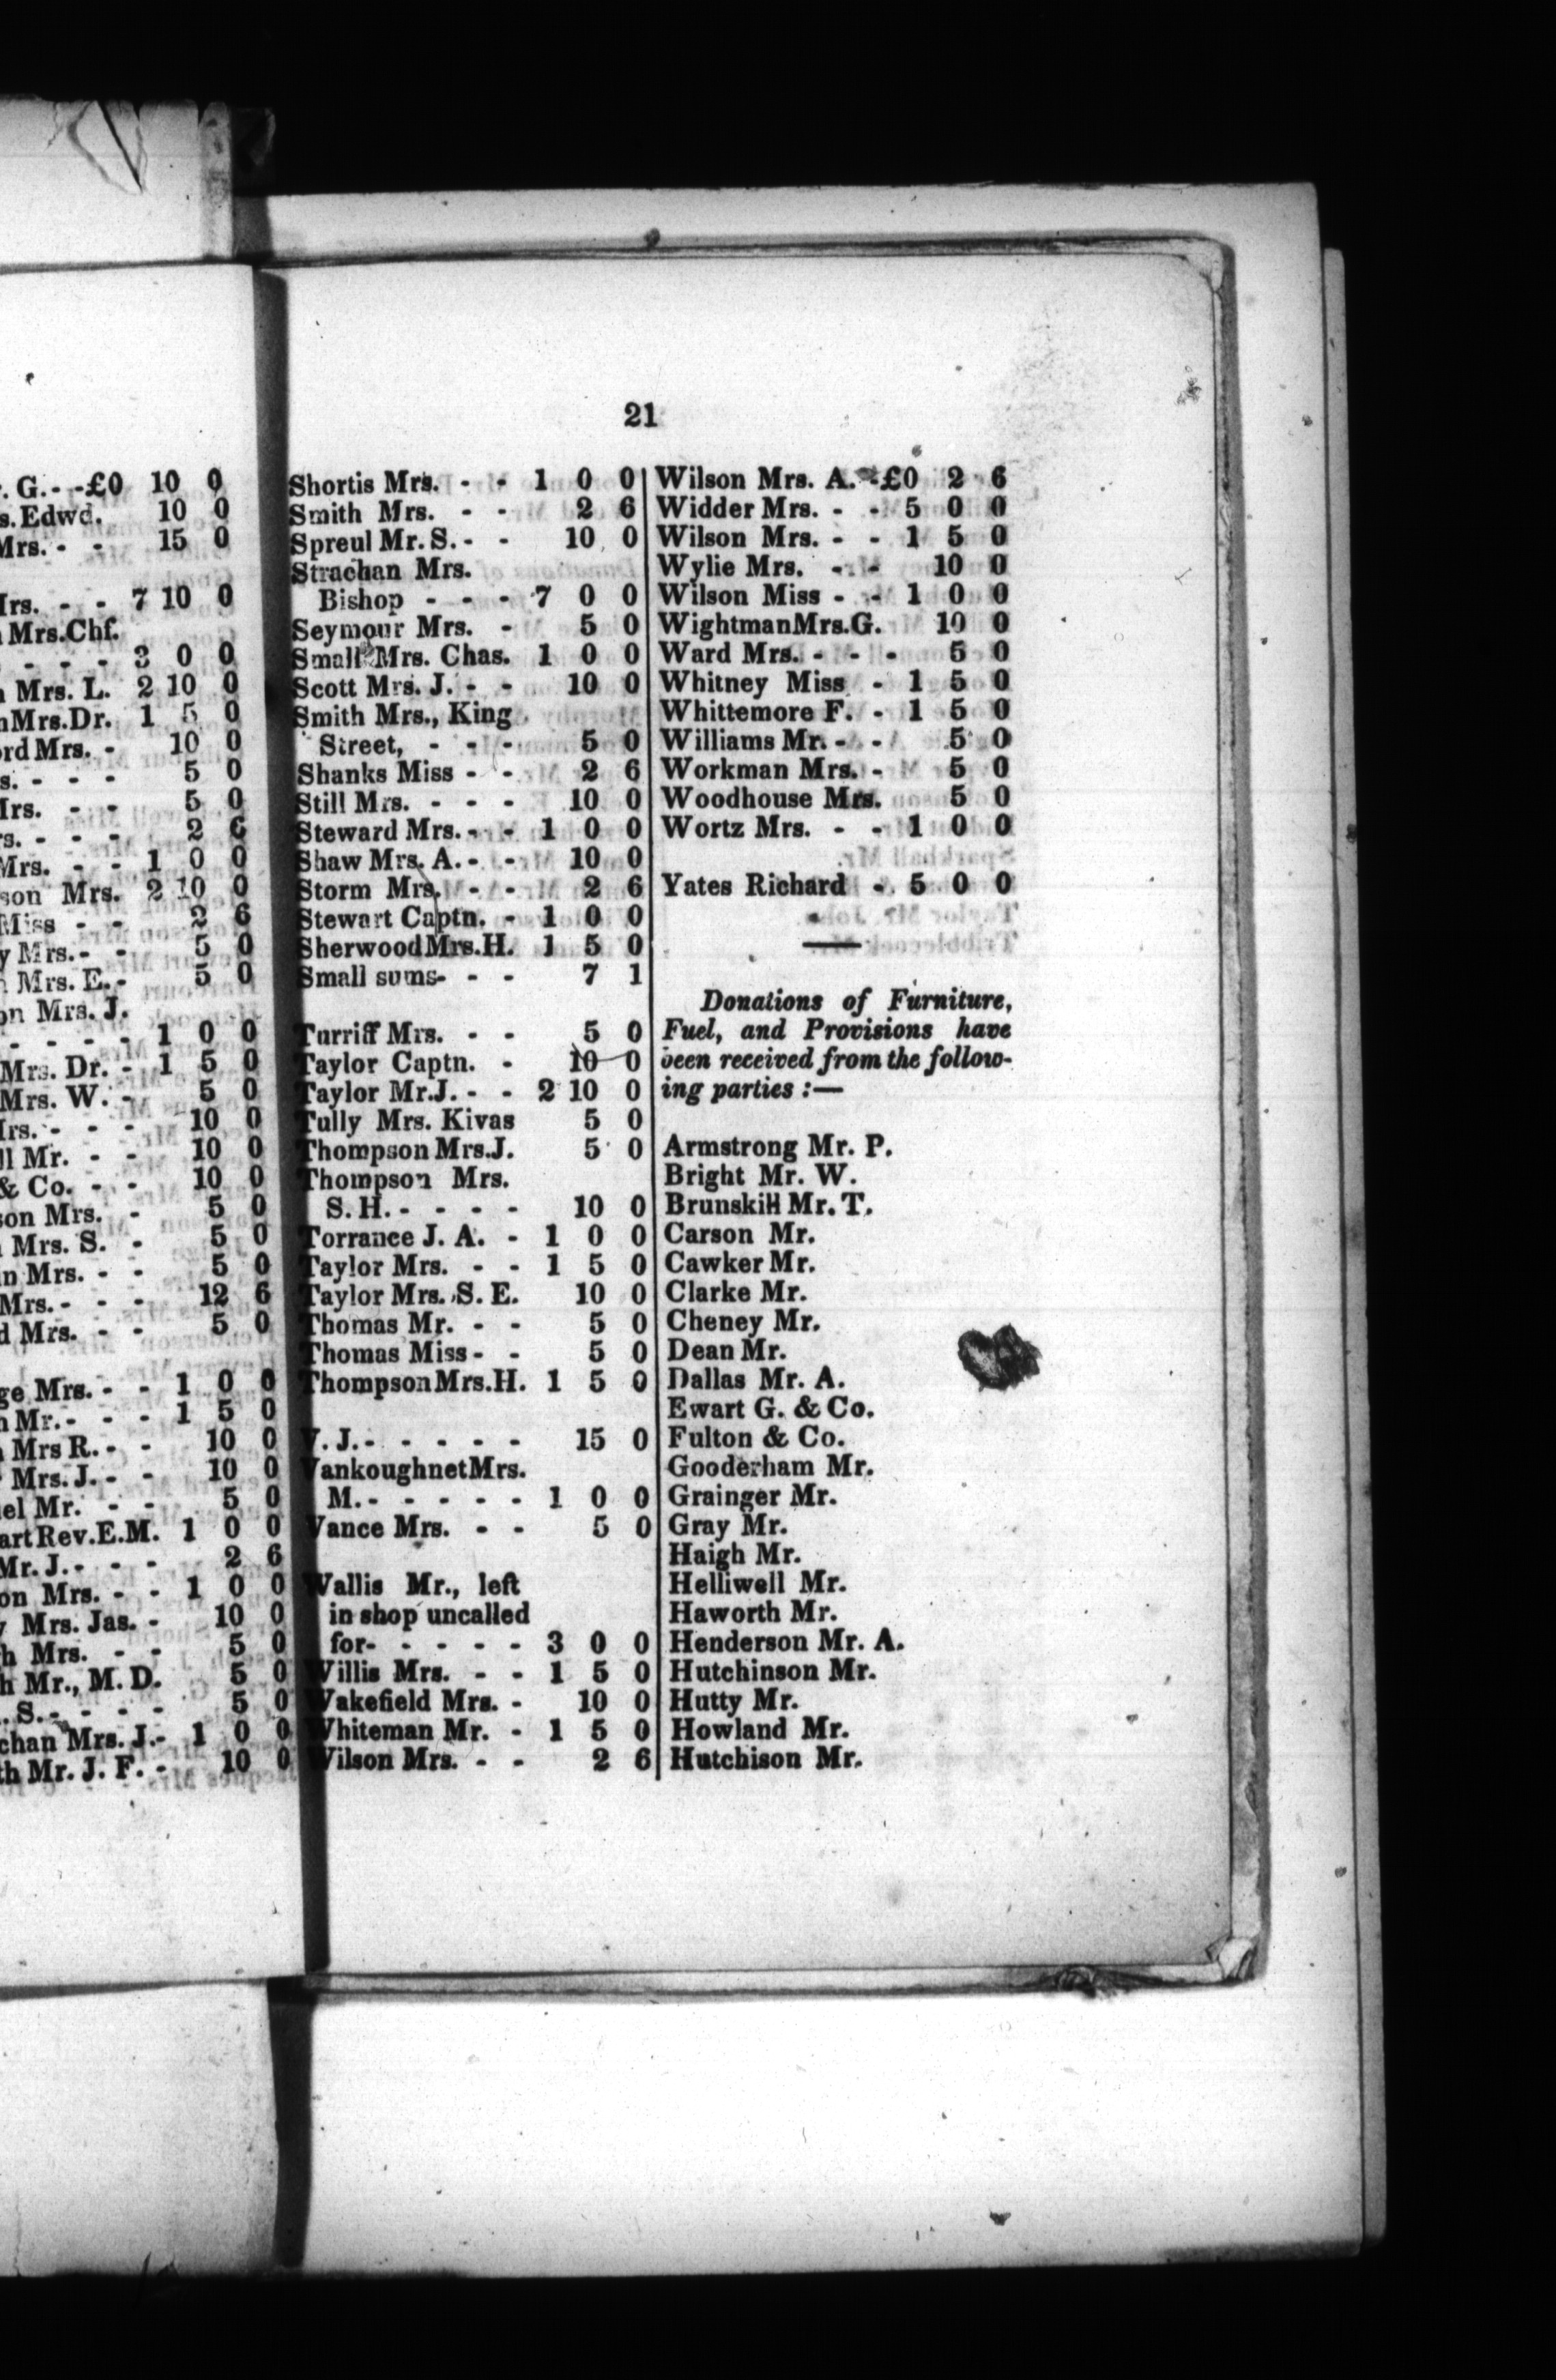 21
. G.- -£0 10 0
s. Edwd. 10 0
Mrs. - - 15 0
Mrs. - - 7 10 0
Mrs. Chf.
- - - - 3 0 0
Mrs. L. 2 10 0
Mrs. Dr. 1 5 0
ord Mrs. - 10 0
s. - - - 5 0
Mrs. - - 5 0
rs. - - - 2 6
Mrs. - - 1 0 0
son Mrs. 2 10 0
Miss - - 2 6
y Mrs. - - 5 0
Mrs. E. - 5 0
on Mrs. J.
- - - - 1 0 0
Mrs. Dr. - 1 5 0
Mrs. W. - 5 0
Mrs. - - - 10 0
ll Mr. - - 10 0
& Co. - - 10 0
son Mrs. - 5 0
Mrs. S. - 5 0
n Mrs. - - 5 0
Mrs. - - - 12 6
d Mrs. - - 5 0
ge Mrs. - - 1 0 0
n Mr. - - - 1 5 0
Mrs R. - - 10 0
Mrs. J. - - 10 0
el Mr. - - 5 0
art Rev. E. M. 1 0 0
Mr. J. - - - 2 6
on Mrs. - - 1 0 0
y Mrs. Jas. - 10 0
h Mrs. - - 5 0
h Mr., M. D. 5 0
. S. - - - - 5 0
chan Mrs. J. - 1 0 0
th Mr. J. F. - 10 0
Shortis Mrs. - - 1 0 0
Smith Mrs. - - 2 6
Spreul Mr. S. - - 10 0
Strachan Mrs.
Bishop - - - 7 0 0
Seymour Mrs. - 5 0
Small Mrs. Chas. 1 0 0
Scott Mrs. J. - - 10 0
Smith Mrs., King
Street, - - - 5 0
Shanks Miss - - 2 6
Still Mrs. - - - 10 0
Steward Mrs. - - 1 0 0
Shaw Mrs. A. - - 10 0
Storm Mrs. - - 2 6
Stewart Captn. - 1 0 0
Sherwood Mrs. H. 1 5 0
Small sums- - - 7 1
Turriff Mrs. - - 5 0
Taylor Captn. - 10 0
Taylor Mr. J. - - 2 10 0
Tully Mrs. Kivas 5 0
Thompson Mrs. J. 5 0
Thompson Mrs.
S. H. - - - - 10 0
Torrance J. A. - 1 0 0
Taylor Mrs. - - 1 5 0
Taylor Mrs. S. E. 10 0
Thomas Mr. - - 5 0
Thomas Miss - - 5 0
Thompson Mrs. H. 1 5 0
V. J. - - - - - 15 0
Vankoughnet Mrs.
M. - - - - - 1 0 0
Vance Mrs. - - 5 0
Wallis Mr., left
in shop uncalled
for- - - - - 3 0 0
Willis Mrs. - - 1 5 0
Wakefield Mrs. - 10 0
Whiteman Mr. - 1 5 0
Wilson Mrs. - - 2 6
Wilson Mrs. A. -£0 2 6
Widder Mrs. - - 5 0 0
Wilson Mrs. - - 1 5 0
Wylie Mrs. - - 10 0
Wilson Miss - - 1 0 0
Wightman Mrs. G. 10 0
Ward Mrs. - - - 5 0
Whitney Miss - 1 5 0
Whittemore F. - 1 5 0
Williams Mr. - - 5 0
Workman Mrs. - 5 0
Woodhouse Mrs. 5 0
Wortz Mrs. - - 1 0 0
Yates Richard - 5 0 0
Donations of Furniture,
Fuel, and Provisions have
been received from the follow-
ing parties :—
Armstrong Mr. P.
Bright Mr. W.
Brunskill Mr. T.
Carson Mr.
Cawker Mr.
Clarke Mr.
Cheney Mr.
Dean Mr.
Dallas Mr. A.
Ewart G. & Co.
Fulton & Co.
Gooderham Mr.
Grainger Mr.
Gray Mr.
Haigh Mr.
Helliwell Mr.
Haworth Mr.
Henderson Mr. A.
Hutchinson Mr.
Hutty Mr.
Howland Mr.
Hutchison Mr.